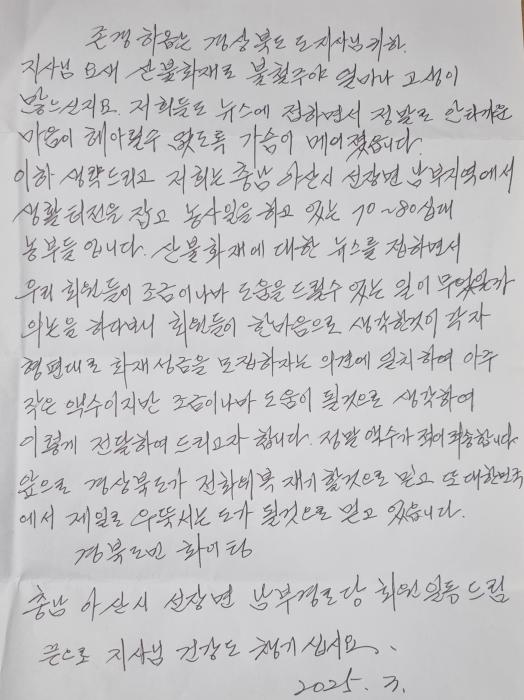 존경하옵는 경상북도 도지사님 귀하.
지사님 요새 산불화재로 불철주야 얼마나 고생이
많으신지요. 저희들도 뉴스에 접하면서 정말로 안타까운
마음이 헤아릴수 없도록 가슴이 메어졌습니다.
이하 생략드리고 저희는 충남 아산시 선장면 남부지역에서
생활터전을 잡고 농사일을 하고 있는 70~80십대
농부들 입니다. 산불화재에 대한 뉴스를 접하면서
우리 회원들이 조금이나마 도움을 드릴수 있는 일이 무엇일까
의논을 하다보니 회원들이 한마음으로 생각한것이 각자
형편대로 화재성금을 모집하자는 의견에 일치하여 아주
작은 액수이지만 조금이나마 도움이 될것으로 생각하여
이렇게 전달하여 드리고자 합니다. 정말 액수가 적어 죄송합니다
앞으로 경상북도가 전화위복 재기할것으로 믿고 또 대한민국
에서 제일로 우뚝서는 도가 될것으로 믿고 있습니다.
경북도민 화이팅
충남 아산시 선장면 남부경로당 회원일동 드림
끝으로 지사님 건강도 챙기십시요.
2025. 3.